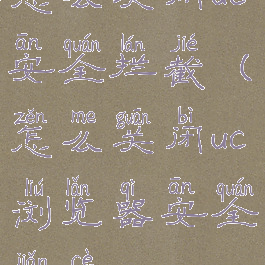 ān quán lán jié
安全拦截（
zěn me guān bì
怎么关闭uc
liú lǎn qì ān quán
浏览器安全
jiǎn cè